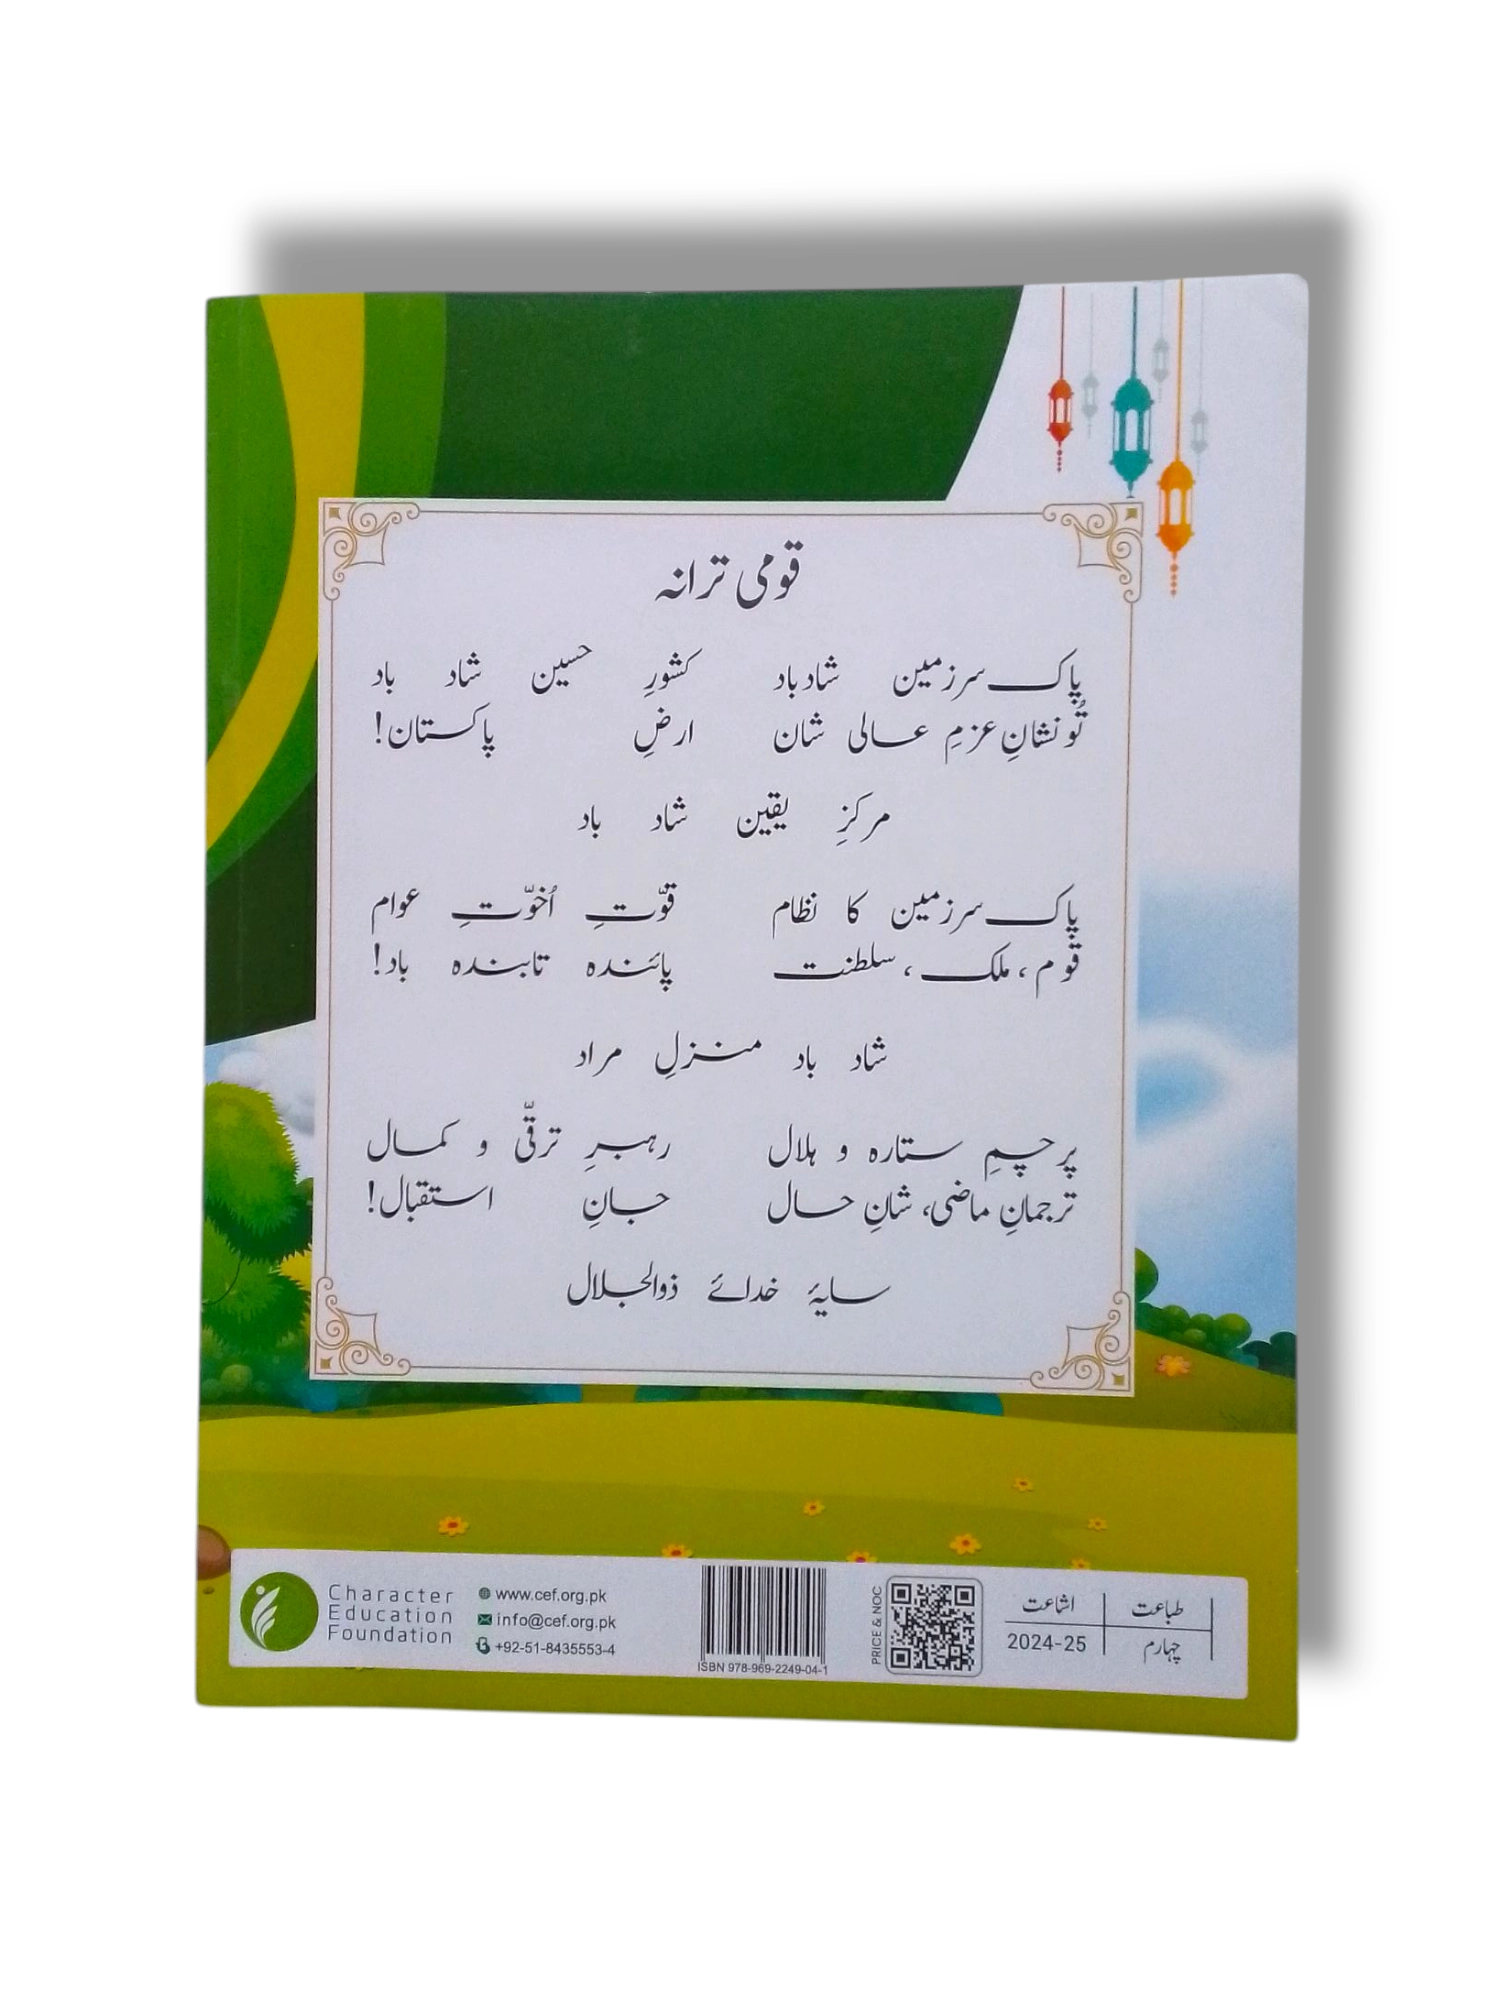 قومی ترانہ
پاک سرزمین شادباد کشورِ حسین شاد باد
تُو نشانِ عزمِ عالی شان ارضِ پاکستان!
مرکزِ یقین شاد باد
پاک سرزمین کا نظام قوّتِ اُخوّتِ عوام
قوم، ملک، سلطنت پائندہ تابندہ باد!
شاد باد منزلِ مراد
پرچمِ ستارہ و ہلال رہبرِ ترقّی و کمال
ترجمانِ ماضی، شانِ حال جانِ استقبال!
سایۂ خدائے ذوالجلال
Character
Education
Foundation
www.cef.org.pk
info@cef.org.pk
+92-51-8435553-4
ISBN 978-969-2249-04-1
PRICE & NOC
طباعت اشاعت
چہارم 2024-25